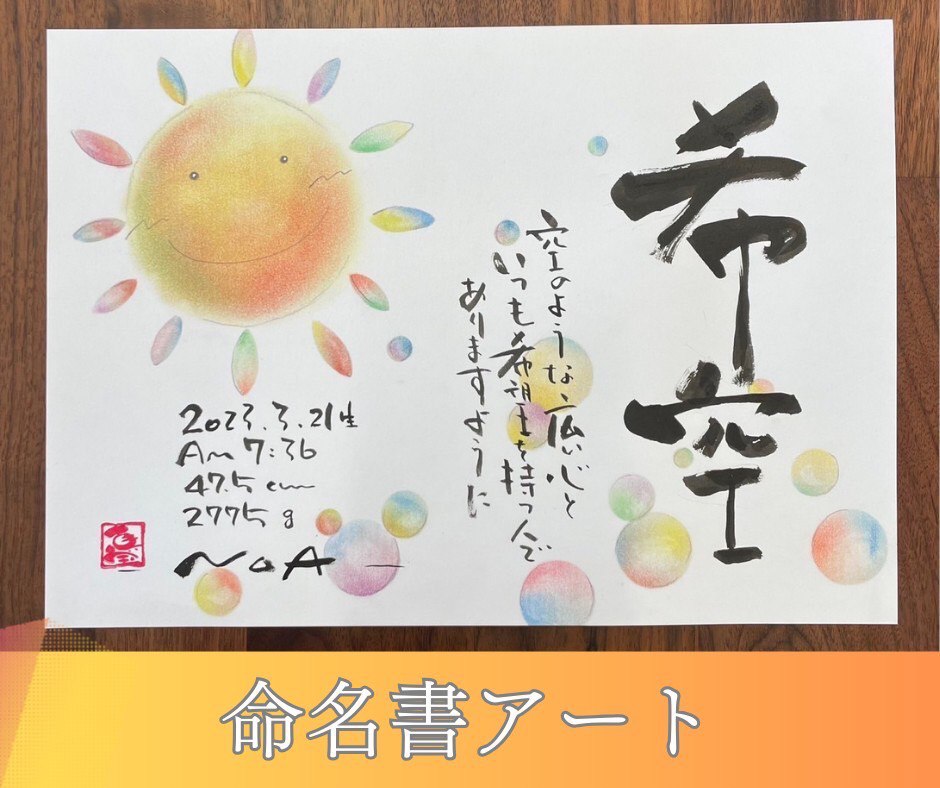 希空
空のような広い心と
いつも希望を持つ人で
ありますように
2023.3.21生
Am 7:36
47.5 cm
2775 g
NoA
命名書アート